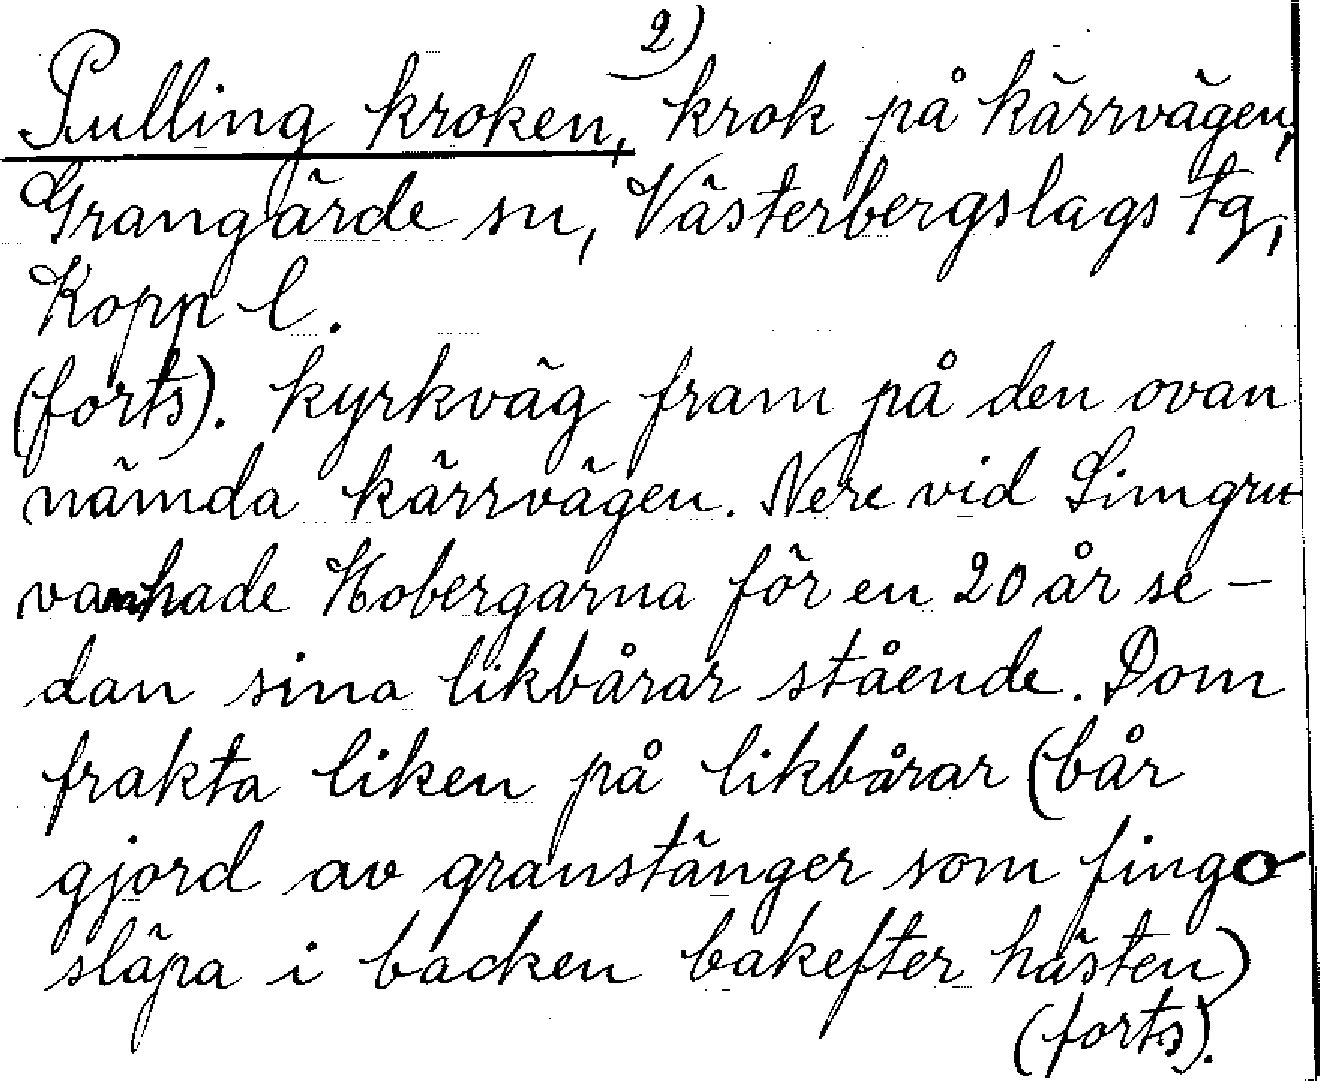 2)
Pulling kroken, krok på kärrvägen,
Grangärde sn, Västerbergslags tg,
Kopp l.
(forts). kyrkväg fram på den ovan
nämda kärrvägen. Nere vid Limgru-
van hade Hobergarna för en 20 år se-
dan sina likbårar stående. Dom
frakta liken på likbårar (bår
gjord av granstänger som fingo
släpa i backen bakefter hästen)
(forts).